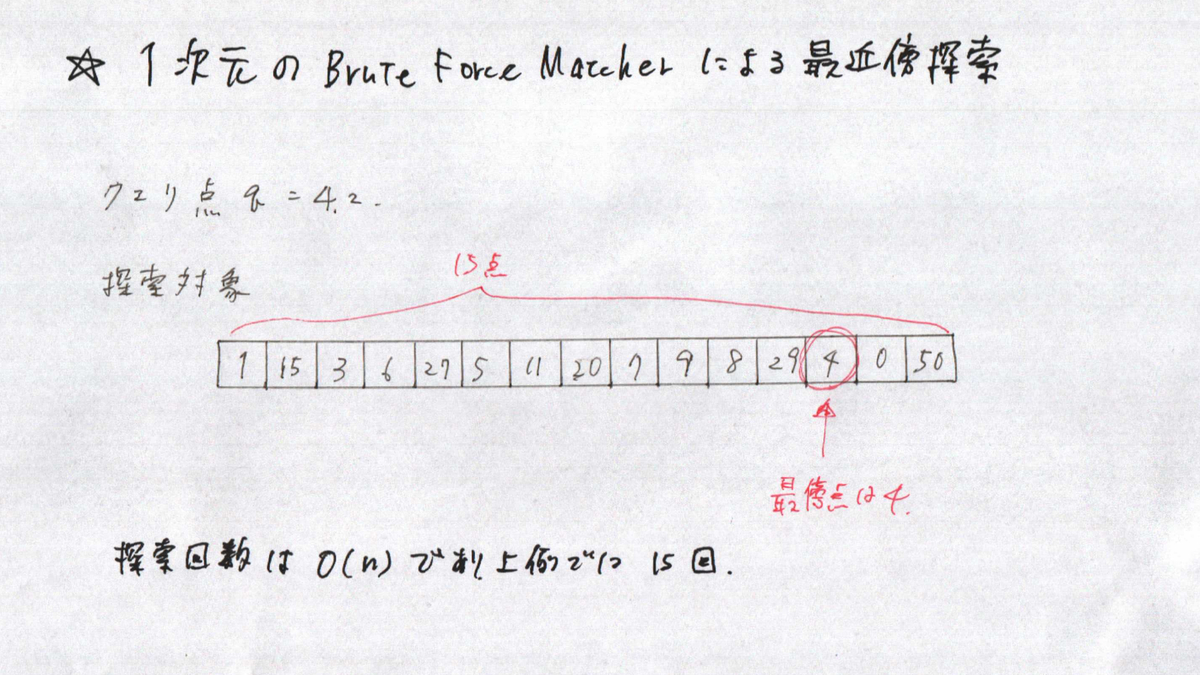 ☆ 1次元の Brute Force Matcher による最近傍探索
クエリ点 q = 4.2.
探索対象
15点
1 15 3 6 27 5 11 20 7 9 8 29 4 0 50
最傍点は4.
探索回数は O(n) であり上例では 15回.